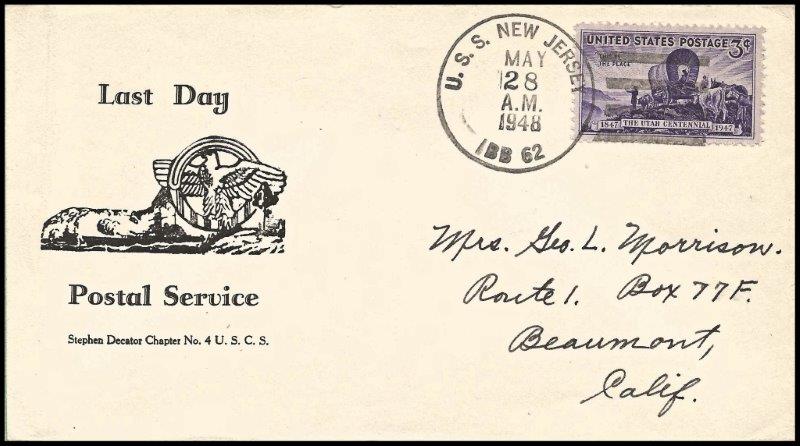 Last Day
Postal Service
Stephen Decator Chapter No. 4 U. S. C. S.
U. S. S. NEW JERSEY
MAY
28
A.M.
1948
(BB 62)
UNITED STATES POSTAGE 3¢
THIS IS
THE PLACE
1847 THE UTAH CENTENNIAL 1947
Mrs. Geo. L. Morrison.
Route 1. Box 77F.
Beaumont,
Calif.